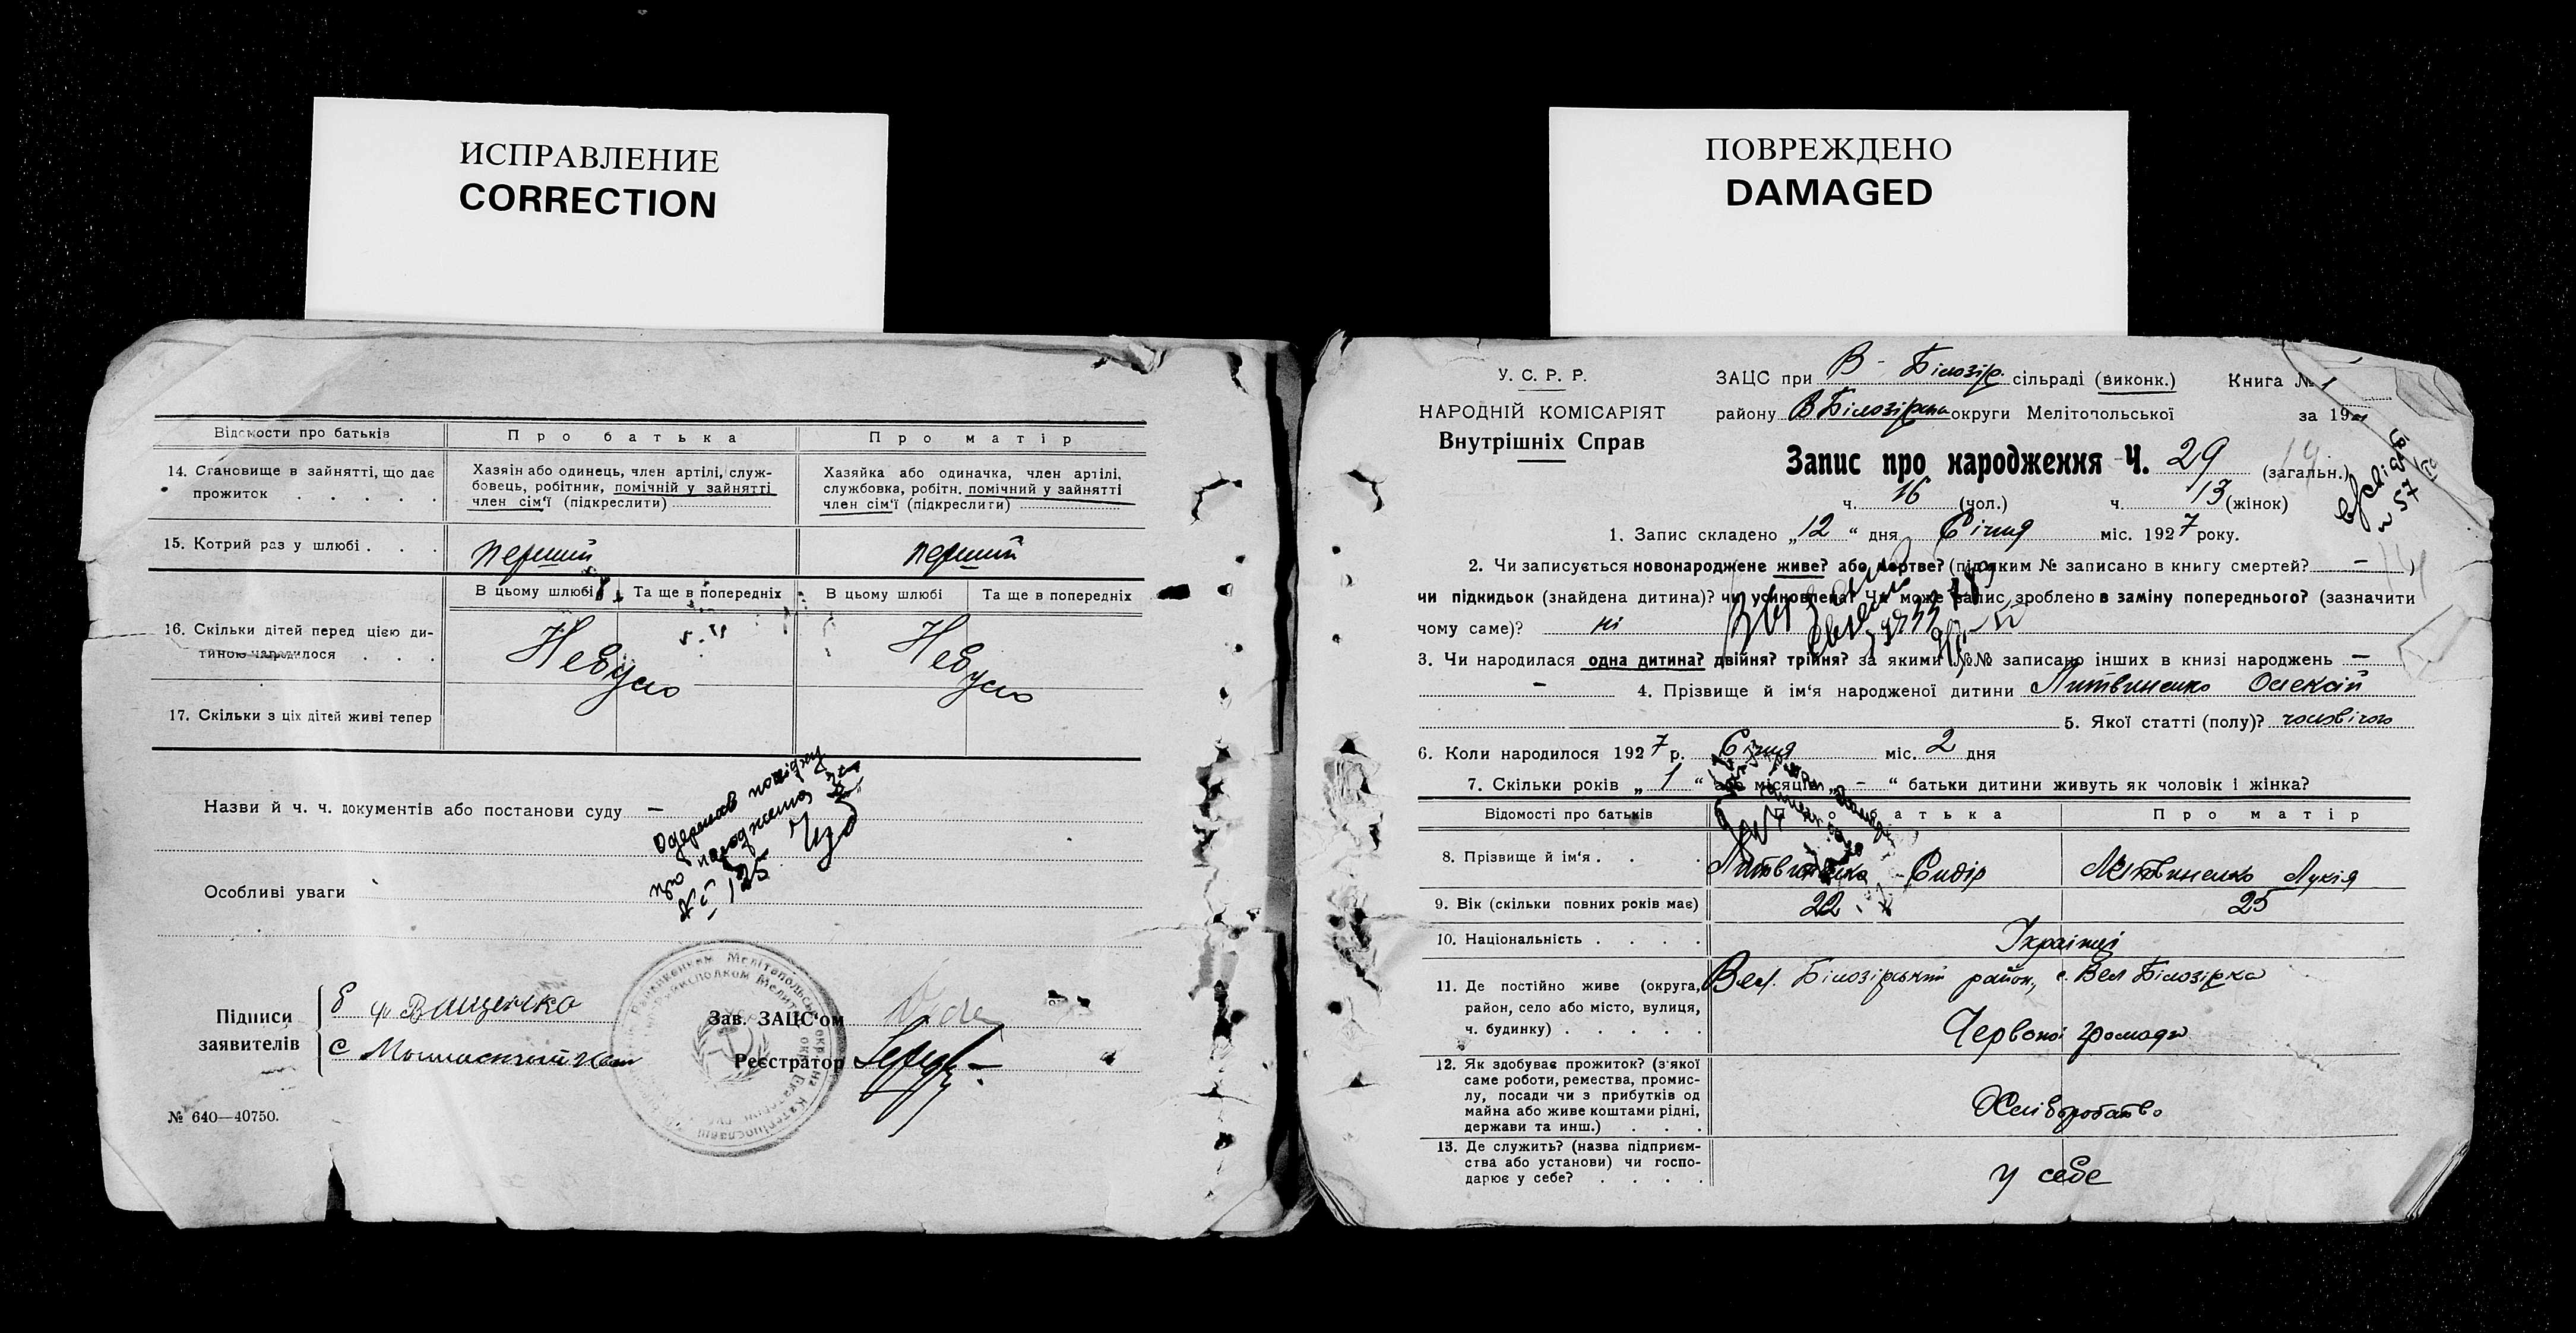 ИСПРАВЛЕНИЕ
CORRECTION
Відомости про батьків
Про батька
Про матір
14. Становище в зайнятті, що дає
прожиток . . . . .
Хазяін або одинець, член артілі, служ-
бовець, робітник, помічній у зайнятті
член сім'ї (підкреслити)
Хазяйка або одиначка, член артілі,
службовка, робітн. помічний у зайнятті
член сім'ї (підкреслити)
15. Котрий раз у шлюбі . . .
перший
перший
В цьому шлюбі
Та ще в попередніх
В цьому шлюбі
Та ще в попередніх
16. Скільки дітей перед цією ди-
тиною народилося . . .
Небуло
Небуло
17. Скільки з ціх дітей живі тепер
Назви й ч. ч. документів або постанови суду —
Одержав
про народження
Особливі уваги
Підписи
заявителів
Ващенко
Зав. ЗАЦС'ом
Реєстратор
№ 640—40750.
ПОВРЕЖДЕНО
DAMAGED
У. С. Р. Р.
НАРОДНІЙ КОМІСАРІЯТ
Внутрішніх Справ
ЗАЦС при В - Білозір. сільраді (виконк.) Книга № 1
району В Білозірка округи Мелітопольської за 19
Запис про народження Ч. 29 (загальн.)
ч. 16 (чол.) ч. 13 (жінок)
1. Запис складено „12“ дня Січня міс. 1927 року.
2. Чи записується новонароджене живе? або мертве? (під яким № записано в книгу смертей? — )
чи підкидьок (знайдена дитина)? чи усиновлена? Чи може запис зроблено в заміну попереднього? (зазначити
чому саме)? ні
3. Чи народилася одна дитина? двійня? трійня? за якими №№ записано інших в книзі народжень —
— 4. Прізвище й ім'я народженої дитини Литвиненко Олексій
5. Якої статті (полу)? чоловічого
6. Коли народилося 1927 р. Січня міс. 2 дня
7. Скільки років „ 1 “ або місяців „ – “ батьки дитини живуть як чоловік і жінка?
Відомості про батьків
Про батька
Про матір
8. Прізвище й ім'я . . .
Литвиненко Сидір
Литвиненко Лукія
9. Вік (скільки повних років має)
22
25
10. Національність . . . .
Українці
11. Де постійно живе (округа,
район, село або місто, вулиця,
ч. будинку) . . . . .
Вел. Білозірський район, с. Вел Білозірка
Червоної Громади
12. Як здобуває прожиток? (з'якої
саме роботи, ремества, промис-
лу, посади чи з прибутків од
майна або живе коштами рідні,
держави та инш.) . . .
Хліборобство
13. Де служить? (назва підприєм-
ства або установи) чи госпо-
дарює у себе? . . . .
у себе